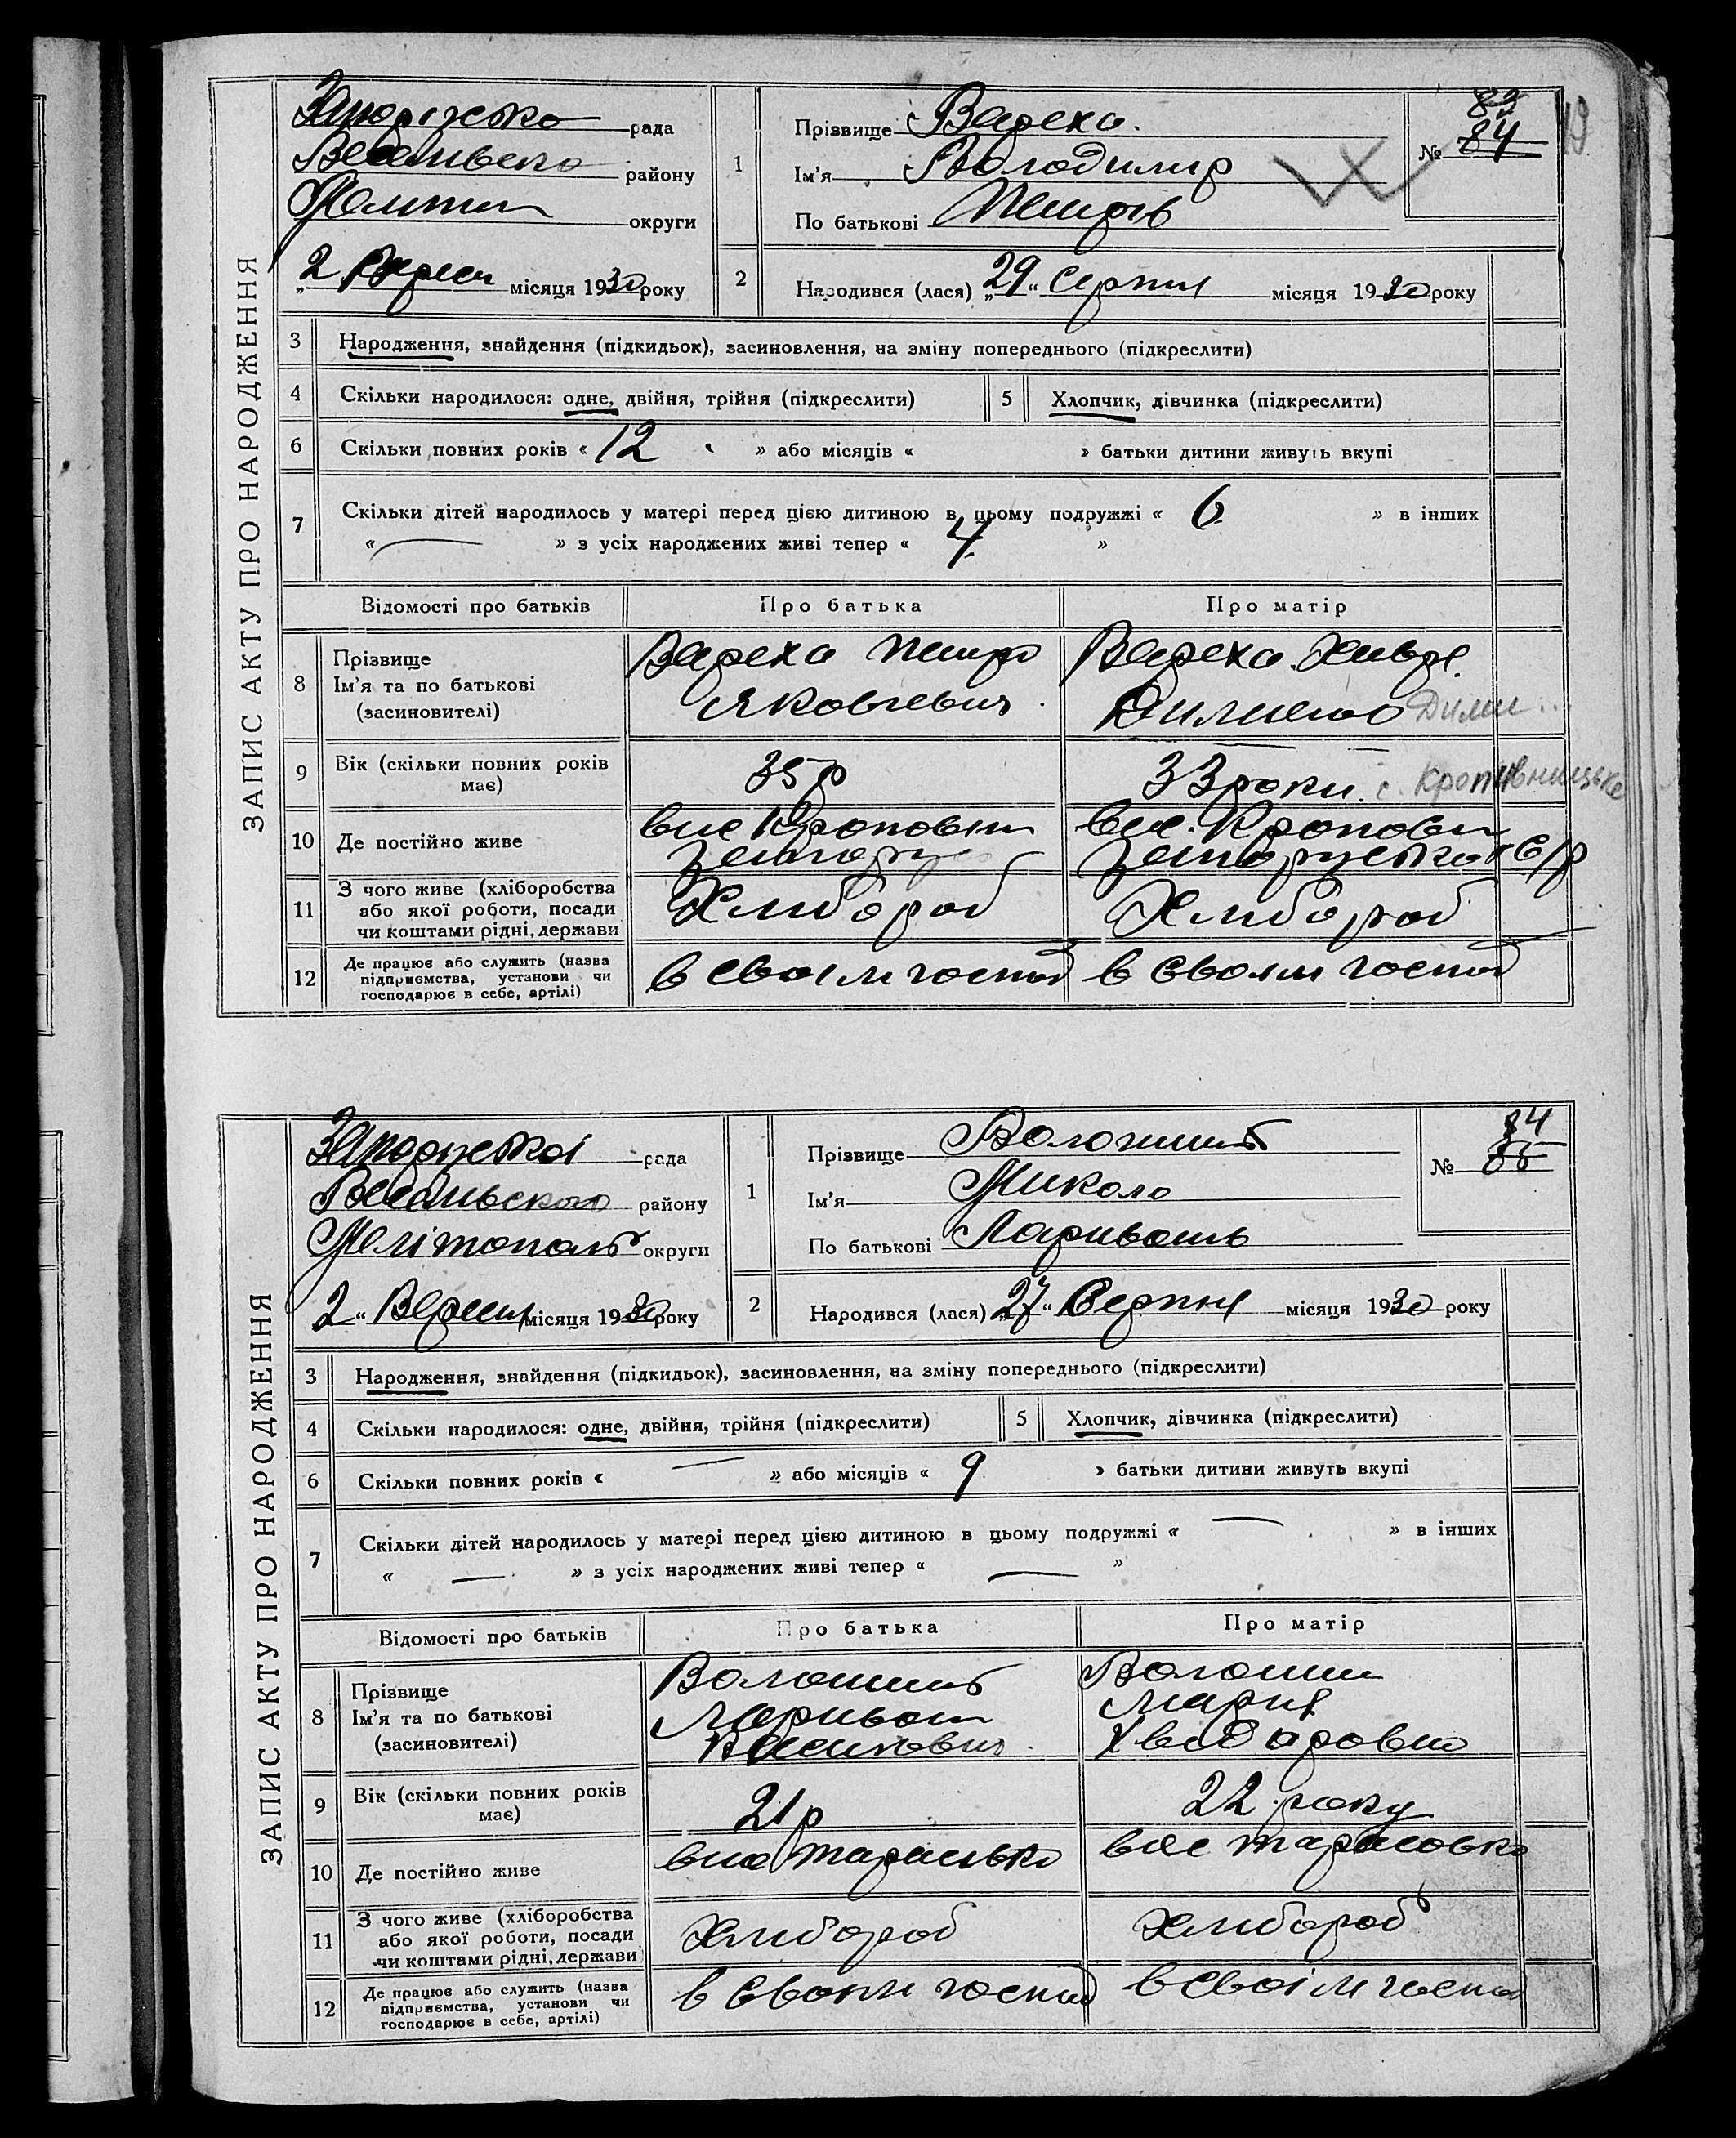 ЗАПИС АКТУ ПРО НАРОДЖЕННЯ
Запоріжсько рада
району
округи
2 місяця 1930 року
1
Прізвище Вареха.
Ім'я Володимир
По батькові Петров
№ 83
84
19
2
Народився (лася) „29“ серпня місяця 1930 року
3 Народження, знайдення (підкидьок), засиновлення, на зміну попереднього (підкреслити)
4 Скільки народилося: одне, двійня, трійня (підкреслити)
5 Хлопчик, дівчинка (підкреслити)
6 Скільки повних років « 12 » або місяців « » батьки дитини живуть вкупі
7 Скільки дітей народилось у матері перед цією дитиною в цьому подружжі « 6 » в інших
« — » з усіх народжених живі тепер « 4 »
Відомості про батьків Про батька Про матір
8 Прізвище
Ім'я та по батькові
(засиновителі)
Вареха Петро
Яковлевич
Вареха
9 Вік (скільки повних років
має)
35 р
33 роки. с. Кропивницьке
10 Де постійно живе
11 З чого живе (хліборобства
або якої роботи, посади
чи коштами рідні, держави
Хлибороб
Хлибороб
12 Де працює або служить (назва
підприємства, установи чи
господарює в себе, артілі)
в своім господ
в своїм господ
ЗАПИС АКТУ ПРО НАРОДЖЕННЯ
Запоріжської рада
району
Мелітополь округи
2 “ Вересня місяця 1930 року
1
Прізвище Волошинь
Ім'я Микола
По батькові Ларивонь
№ 84
85
2
Народився (лася) „27“ Серпня місяця 1930 року
3 Народження, знайдення (підкидьок), засиновлення, на зміну попереднього (підкреслити)
4 Скільки народилося: одне, двійня, трійня (підкреслити)
5 Хлопчик, дівчинка (підкреслити)
6 Скільки повних років « — » або місяців « 9 » батьки дитини живуть вкупі
7 Скільки дітей народилось у матері перед цією дитиною в цьому подружжі « — » в інших
« — » з усіх народжених живі тепер « — »
Відомості про батьків Про батька Про матір
8 Прізвище
Ім'я та по батькові
(засиновителі)
Волошинь
Ларивон
Василович
Волошин
Мария
Хведоровно
9 Вік (скільки повних років
має)
21 р
22 року
10 Де постійно живе
вис Тарасівка
вис Тарасовка
11 З чого живе (хліборобства
або якої роботи, посади
чи коштами рідні, держави
Хлибороб
Хлибороб
12 Де працює або служить (назва
підприємства, установи чи
господарює в себе, артілі)
в своїм господ
в своім господ